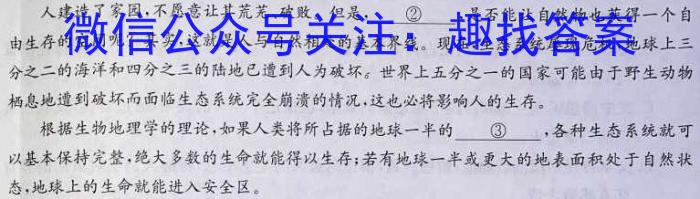 人建造了家园,不愿意让其荒芜、破败。但是, ② 是否能让自然物也获得一个自
微信公众号关注：趣找答案
由生存的 呢?其实,这就是人与自然相 的基本界线。现 生态系统 危 地球上三
分之二的海洋和四分之三的陆地已遭到人为破坏。世界上五分之一的国家可能由于野生动物
栖息地遭到破坏而面临生态系统完全崩溃的情况,这也必将影响人的生存。
根据生物地理学的理论,如果人类将所占据的地球一半的 ③ ,各种生态系统就可
以基本保持完整,绝大多数的生命就能得以生存;若有地球一半或更大的地表面积处于自然状
态,地球上的生命就能进入安全区。